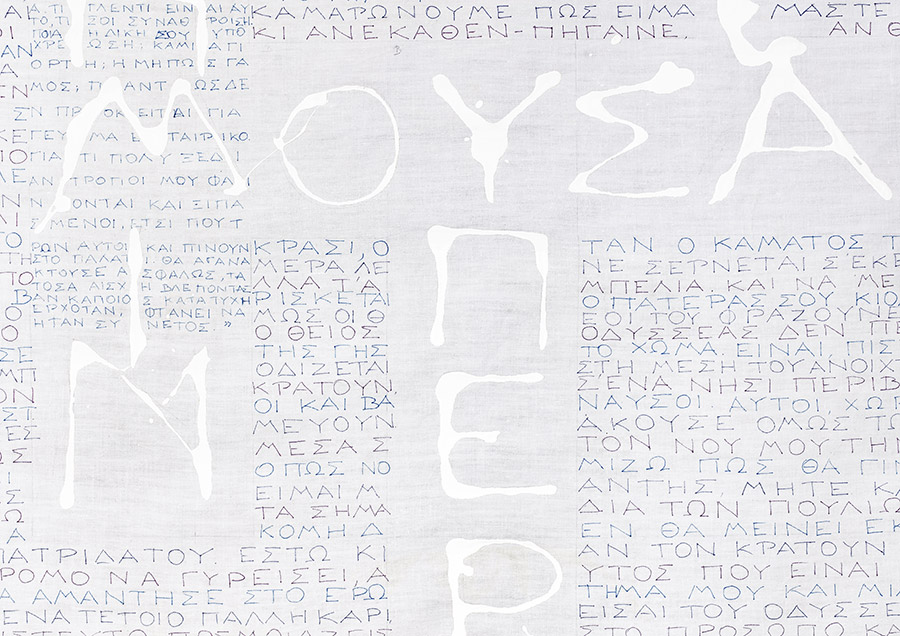 Α,ΤΙ ΓΛΕΝΤΙ ΕΙΝΑΙ ΑΥ
ΤΟ,ΤΙ ΣΟΙ ΣΥΝΑΘΡΟΙΣΗ;
ΠΟΙΑ Η ΔΙΚΗ ΣΟΥ ΥΠΟ
ΧΡΕΩΣΗ; ΚΑΜΙΑ ΓΙ
ΟΡΤΗ; Η ΜΗΠΩΣ ΓΑ
ΜΟΣ; ΠΑΝΤΩΣ ΔΕ
Ν ΠΡΟΚΕΙΤΑΙ ΓΙΑ
ΓΕΥΜΑ ΕΤΑΙΡΙΚΟ.
ΓΙΑΤΙ ΠΟΛΥ ΞΕΔΙ
ΑΝΤΡΟΠΟΙ ΜΟΥ ΦΑΙ
ΝΟΝΤΑΙ ΚΑΙ ΞΙΠΑ
ΣΜΕΝΟΙ, ΕΤΣΙ ΠΟΥ Τ
ΡΩΝ ΑΥΤΟΙ ΚΑΙ ΠΙΝΟΥΝ
ΣΤΟ ΠΑΛΑΤΙ. ΘΑ ΑΓΑΝΑ
ΚΤΟΥΣΕ ΑΣΦΑΛΩΣ, ΤΑ
ΤΟΣΑ ΑΙΣΧΗ ΒΛΕΠΟΝΤΑΣ
ΑΝ ΚΑΠΟΙΟΣ ΚΑΤΑ ΤΥΧΗ
ΕΡΧΟΤΑΝ, ΦΤΑΝΕΙ ΝΑ
ΗΤΑΝ ΣΥΝΕΤΟΣ.»
ΚΑΜΑΡΩΝΟΥΜΕ ΠΩΣ ΕΙΜΑ ΜΑΣΤΕ
ΚΙ ΑΝΕΚΑΘΕΝ-ΠΗΓΑΙΝΕ, ΑΝ Θ
ΜΟΥΣΑ
Μ
Π
Ε
Ρ
ΚΡΑΣΙ, Ο
ΜΕΡΑ ΛΕ
ΛΛΑ ΤΑ
ΡΙΣΚΕΤΑΙ
ΜΩΣ ΟΙ Θ
Ο ΘΕΙΟΣ
ΤΗΣ ΓΗΣ
ΟΔΙΖΕΤΑΙ
ΚΡΑΤΟΥΝ
ΟΙ ΚΑΙ ΒΑ
ΜΕΥΟΥΝ
ΜΕΣΑ Σ
Ο ΠΩΣ ΝΟ
ΕΙΜΑΙ Μ
ΤΑ ΣΗΜΑ
ΚΟΜΗ Δ
ΤΑΝ Ο ΚΑΜΑΤΟΣ Τ
ΝΕ ΣΕΡΝΕΤΑΙ Σ'ΕΚΕ
ΜΠΕΛΙΑ. ΚΑΙ ΝΑ ΜΕ
Ο ΠΑΤΕΡΑΣ ΣΟΥ ΚΙΟΛ
ΕΟΙ ΤΟΥ ΦΡΑΖΟΥΝΕ
ΟΔΥΣΣΕΑΣ ΔΕΝ ΠΕ
ΤΟ ΧΩΜΑ. ΕΙΝΑΙ ΠΙΣ
ΣΤΗ ΜΕΣΗ ΤΟΥ ΑΝΟΙΧΤ
Σ'ΕΝΑ ΝΗΣΙ ΠΕΡΙΒ
ΝΑΥΣΟΙ ΑΥΤΟΙ, ΧΩΡ
ΑΚΟΥΣΕ ΟΜΩΣ ΤΩ
ΤΟΝ ΝΟΥ ΜΟΥ ΤΗΝ
ΜΙΖΩ ΠΩΣ ΘΑ ΓΙΝ
ΑΝΤΗΣ, ΜΗΤΕ ΚΑ
ΔΙΑ ΤΩΝ ΠΟΥΛΙΩ
ΕΝ ΘΑ ΜΕΙΝΕΙ ΕΚ
ΑΝ ΤΟΝ ΚΡΑΤΟΥΝ
ΥΤΟΣ ΠΟΥ ΕΙΝΑΙ
ΤΗΜΑ ΜΟΥ ΚΑΙ ΜΙΛ
ΕΙΣΑΙ ΤΟΥ ΟΔΥΣΣΕ
ΣΤΟ ΠΡΟΣΩΠΟ ΚΑ
ΠΑΤΡΙΔΑ ΤΟΥ. ΕΣΤΩ ΚΙ
ΡΟΜΟ ΝΑ ΓΥΡΕΙΣΕΙ, Α
Α ΑΜΑΝΤΗΣΕ ΣΤΟ ΕΡΩ
ΕΝΑ ΤΕΤΟΙΟ ΠΑΛΛΗΚΑΡΙ,